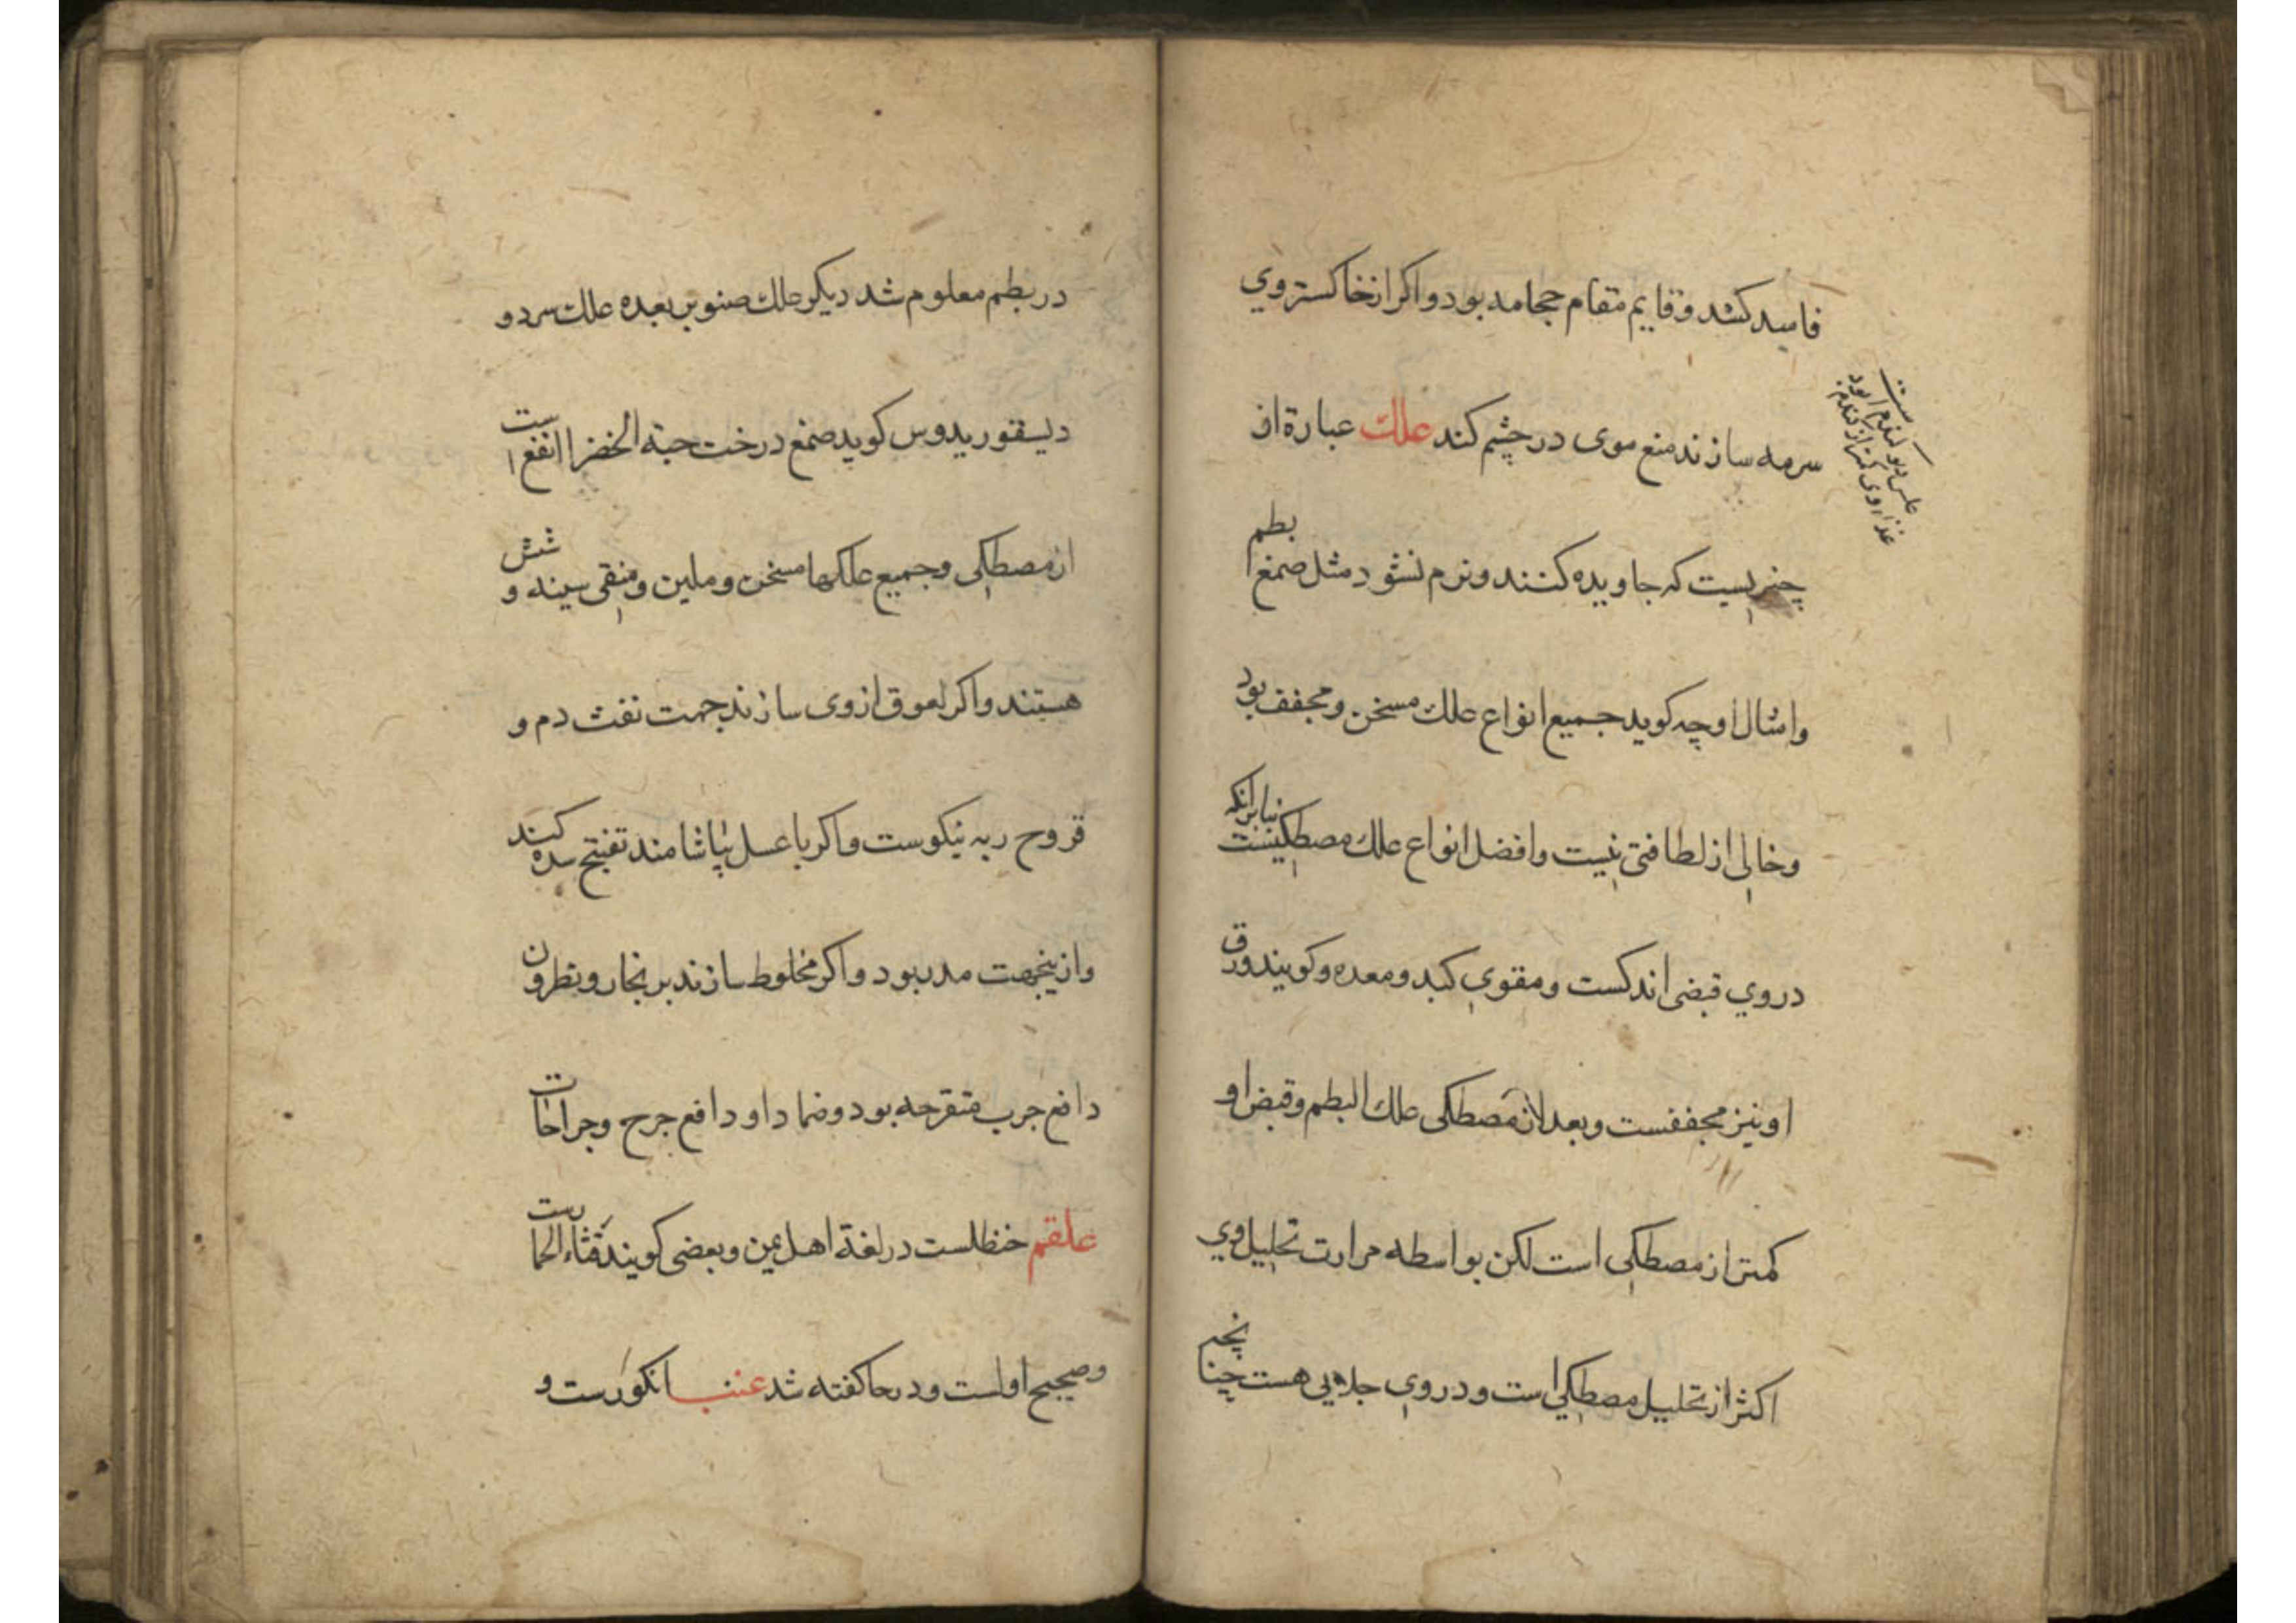 فاسد کشد و قایم مقام حجامه بود و اکر از خاکستر وی
سرمه سازند منع موی در چشم کند علك عبارة از
چیزیست که جاویده کنند و نرم نشود مثل صمغ بطم
و امثال او چه کوید جمیع انواع علك مسخن و مجفف بود
و خالی از لطافتی نیست و افضل انواع علك مصطکیست بنابرانکه
در وی قبضی اندکست و مقوی کبد و معده و کویند ورق
او نیز مجففست و بعد از مصطکی علك البطم و قبض او
کمتر از مصطکی است لکن بواسطه مرارت تحلیل وی
اکثر از تحلیل مصطکی است و در وی جلایی هست چنانچه
علس
غذا وی کمتر از کندم
در بطم معلوم شد دیکر علك صنوبر بعده علك سرو و
دیسقوریدوس کوید صمغ درخت حبة الخضرا انفع است
از مصطکی و جمیع علکها مسخن و ملین و منقی سینه و شش
هستند و اکر لعوق از وی سازند جهت نفث دم و
قروح ریه نیکوست و اکر با عسل بیاشامند تفتیح سده کنند
و ازینجهت مدر بود و اکر مخلوط سازند بزنجار و نطرون
دافع جرب متقرحه بود و ضماد او دافع جرح و جراحات
علقم حنظلست در لغة اهل یمن و بعضی کویند قثاء الحمارست
و صحیح اولست و در حا کفته شد عنب انکورست و